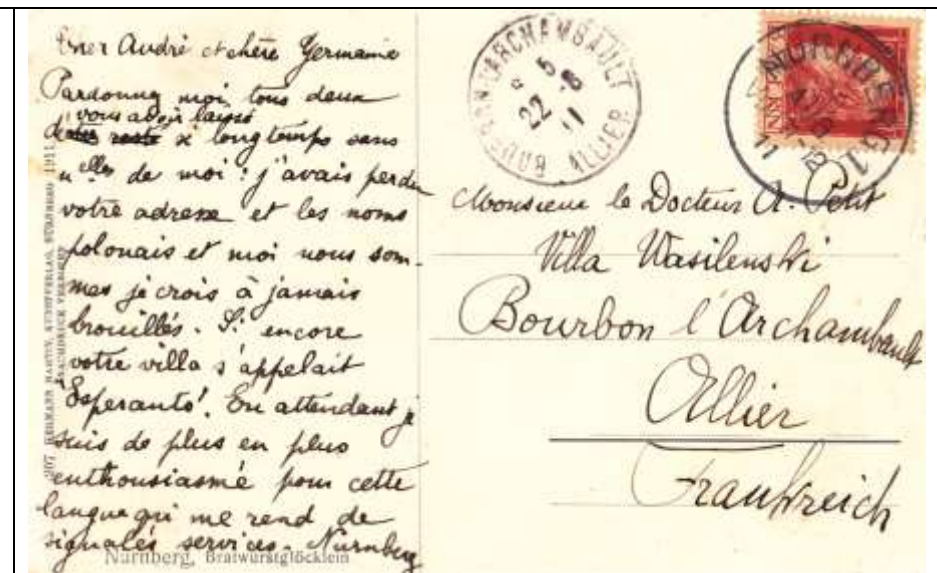 Cher André et chère Germaine
Pardonnez moi tous deux
vous avoir laissé
d'être resté si longtemps sans
n^elles de moi : j'avais perdu
votre adresse et les noms
polonais et moi nous som-
mes je crois à jamais
brouillés. Si encore
votre villa s'appelait
"Esperanto". En attendant je
suis de plus en plus
enthousiasmé pour cette
langue qui me rend de
signalés services. Nurnberg
Nürnberg, Bratwurstglöcklein
HERMANN MARTIN, KUNSTVERLAG, NÜRNBERG 1911
NACHDRUCK VERBOTEN
BOURBON-L'ARCHAMBAULT
5
22 -8
11
ALLIER
NUERNBERG
Monsieur le Docteur A. Petit
Villa Wasilenski
Bourbon l'Archambault
Allier
Frankreich